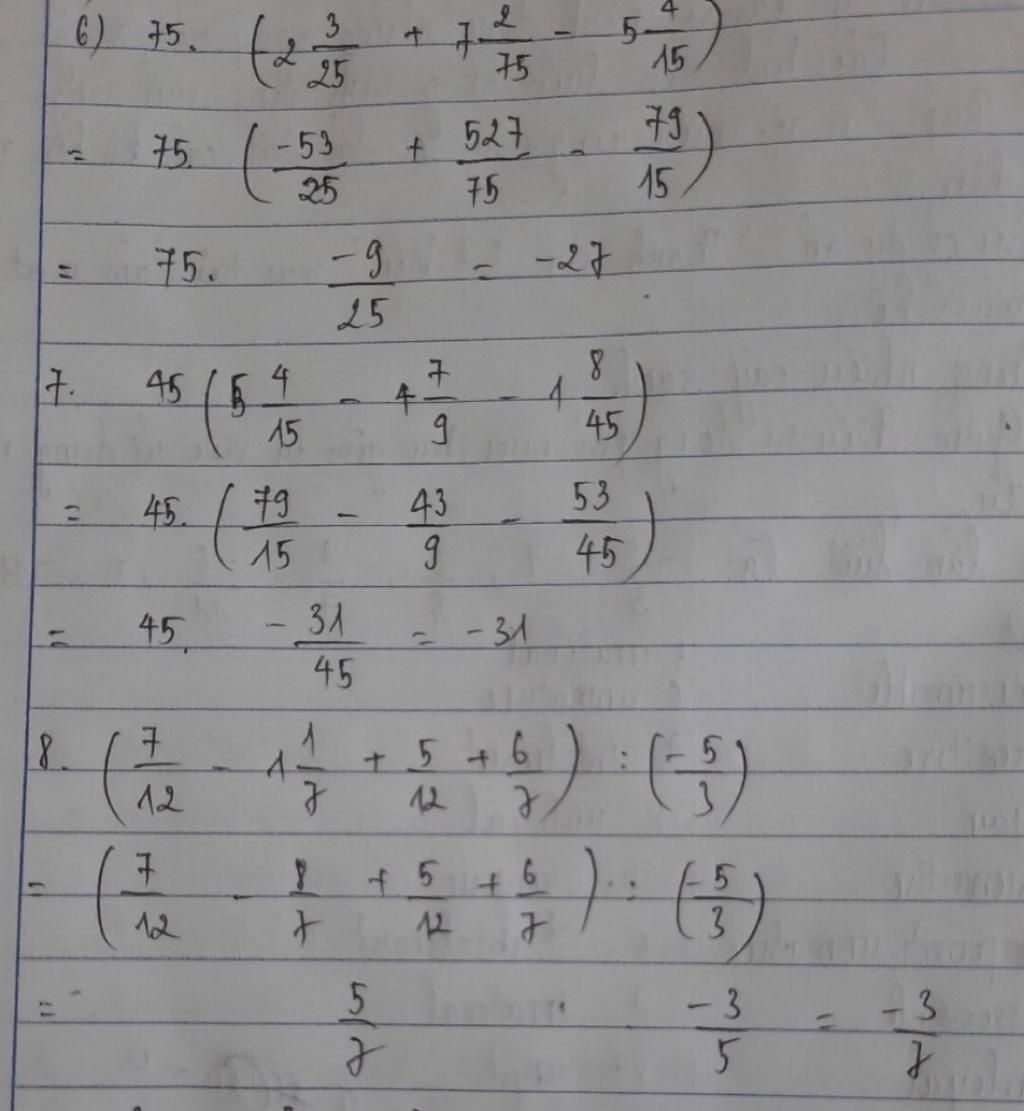 6) 75. (-2 3/25 + 7 2/75 - 5 4/15)
= 75. (-53/25 + 527/75 - 79/15)
= 75. -9/25 = -27
7. 45 (5 4/15 - 4 7/9 - 1 8/45)
= 45. (79/15 - 43/9 - 53/45)
= 45. -31/45 = -31
8. (7/12 - 1 1/7 + 5/12 + 6/7) : (-5/3)
= (7/12 - 8/7 + 5/12 + 6/7) : (-5/3)
= 5/7 . -3/5 = -3/7